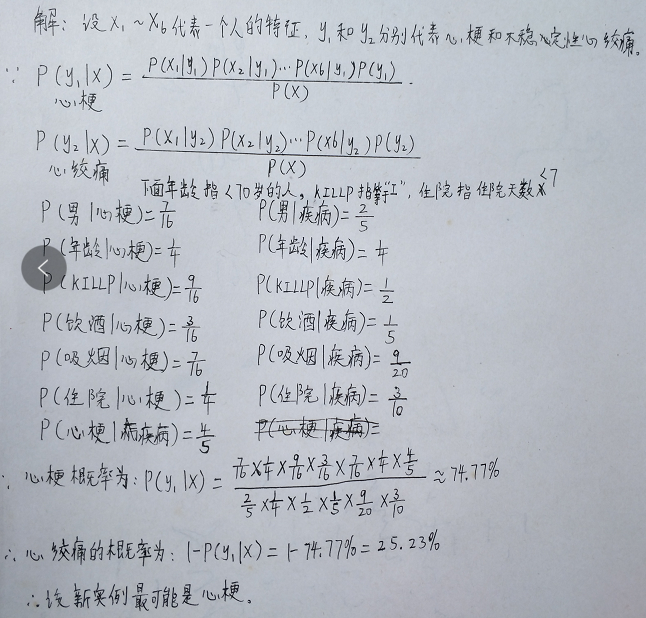 解：设 X₁ ~ X₆ 代表一个人的特征，y₁ 和 y₂ 分别代表心梗和不稳定性心绞痛。
∵ P(y₁|X) = P(X₁|y₁) P(X₂|y₁)⋯P(X6|y₁)P(y₁) / P(X) .
心梗
P(y₂|X) = P(X₁|y₂) P(X₂|y₂)⋯P(X6|y₂)P(y₂) / P(X)
心绞痛
下面年龄指<70岁的人，KILLP指"I"，住院指住院天数<7
P(男|心梗)=7/16 P(男|疾病)=2/5
P(年龄|心梗)=1/4 P(年龄|疾病)=1/4
P(KILLP|心梗)=9/16 P(KILLP|疾病)=1/2
P(饮酒|心梗)=3/16 P(饮酒|疾病)=1/5
P(吸烟|心梗)=7/16 P(吸烟|疾病)=9/20
P(住院|心梗)=1/4 P(住院|疾病)=3/10
P(心梗|疾病)=4/5 P(心梗|疾病)=
∴ 心梗概率为：P(y₁|X) = 7/16×1/4×9/16×3/16×7/16×1/4×4/5 / 2/5×1/4×1/2×1/5×9/20×3/10 ≈ 74.77%
∴ 心绞痛的概率为：1-P(y₁|X) = 1-74.77% = 25.23%
∴ 该新实例最可能是心梗。